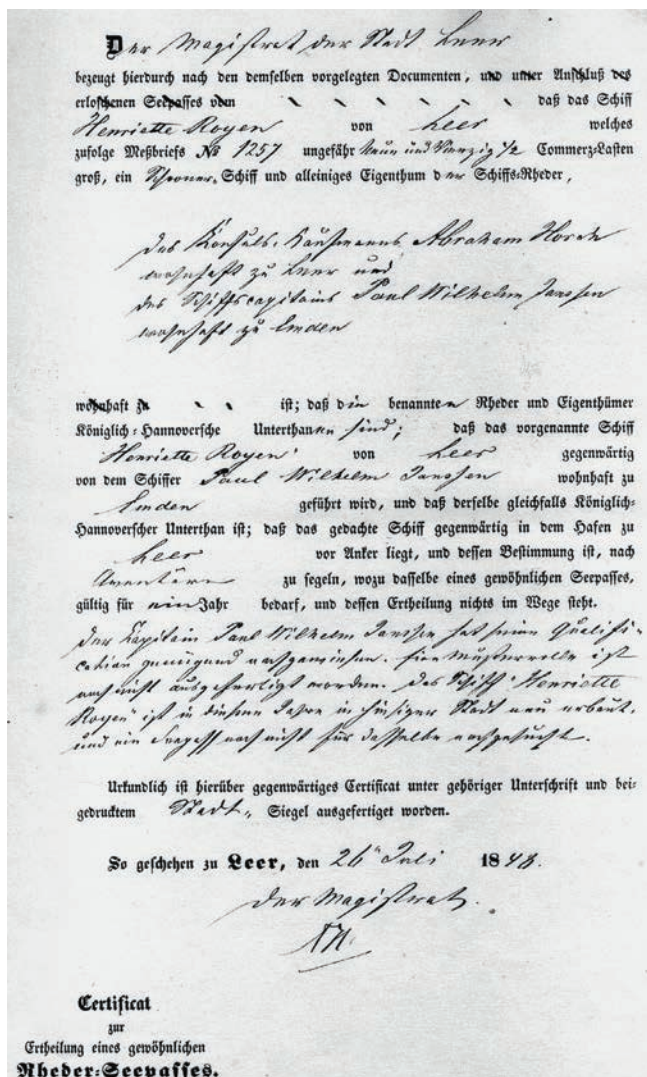 Der Magistrat der Stadt Leer
bezeugt hierdurch nach den demselben vorgelegten Documenten, und unter Anschluß des
erloschenen Seepasses vom daß das Schiff
Henriette Royen von Leer welches
zufolge Meßbriefs No 1257 ungefähr neun und vierzig 1/2 Commerz-Lasten
groß, ein Schooner-Schiff und alleiniges Eigenthum der Schiffs-Rheder,
des Konsuls, Kaufmanns Abraham
wohnhaft zu Leer und
des Schiffscapitains Paul Wilhelm Janssen
wohnhaft zu Emden
wohnhaft zu ist; daß die benannten Rheder und Eigenthümer
Königlich-Hannoversche Unterthanen sind; daß das vorgenannte Schiff
"Henriette Royen" von Leer gegenwärtig
von dem Schiffer Paul Wilhelm Janssen wohnhaft zu
Emden geführt wird, und daß derselbe gleichfalls Königlich-
Hannoverscher Unterthan ist; daß das gedachte Schiff gegenwärtig in dem Hafen zu
Leer vor Anker liegt, und dessen Bestimmung ist, nach
zu segeln, wozu dasselbe eines gewöhnlichen Seepasses,
gültig für ein Jahr bedarf, und dessen Ertheilung nichts im Wege steht.
Der Kapitain Paul Wilhelm Janssen hat seine Qualifi-
cation genügend nachgewiesen. Eine Musterrolle ist
noch nicht ausgefertigt worden. Das Schiff "Henriette
Royen" ist in diesem Jahre in hiesiger Stadt neu erbaut,
und ein Seepass noch nicht für dasselbe nachgesucht.
Urkundlich ist hierüber gegenwärtiges Certificat unter gehöriger Unterschrift und bei-
gedrucktem Stadt-Siegel ausgefertiget worden.
So geschehen zu Leer, den 26n Juli 1848.
Der Magistrat.
Certificat
zur
Ertheilung eines gewöhnlichen
Rheder-Seepasses.